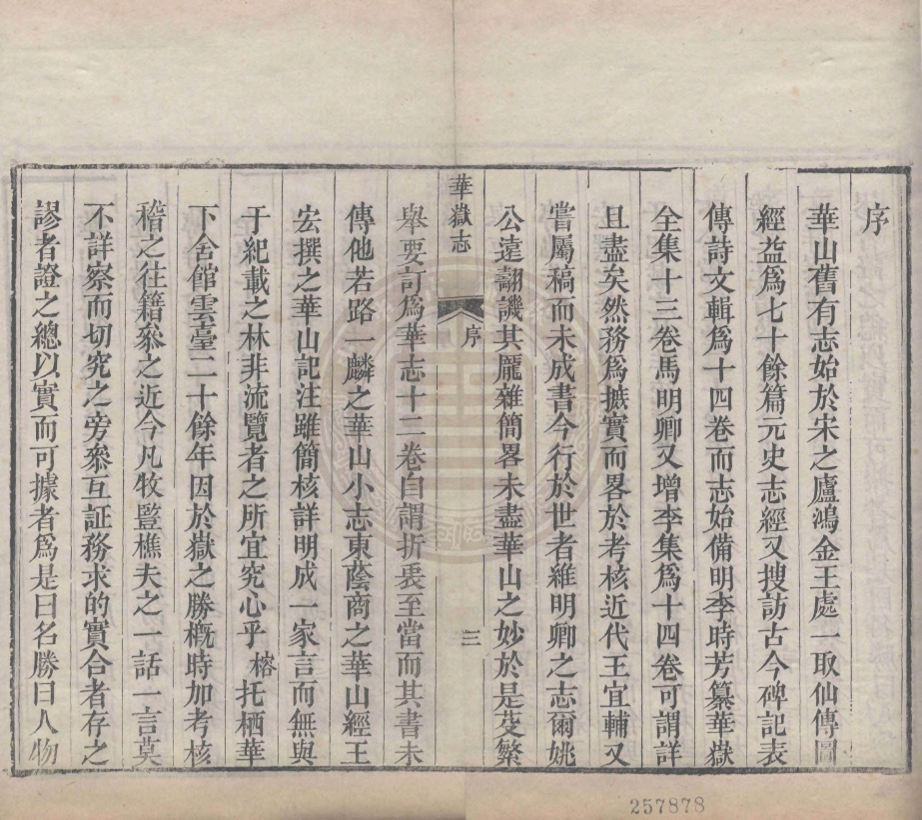 序
華山舊有志始於宋之廬鴻金王處一取仙傳圖
經益爲七十餘篇元史志經又搜訪古今碑記表
傳詩文輯爲十四卷而志始備明李時芳纂華嶽
全集十三卷馬明卿又增李集爲十四卷可謂詳
且盡矣然務爲摭實而畧於考核近代王宜輔又
嘗屬稿而未成書今行於世者維明卿之志爾姚
公遠翿譏其厖雜簡畧未盡華山之妙於是芟繁
華嶽志
序
三
舉要訂爲華志十二卷自謂折衷至當而其書未
傳他若路一麟之華山小志東蔭商之華山經王
宏撰之華山記注雖簡核詳明成一家言而無與
于紀載之林非流覽者之所宜究心乎榕托栖華
下舍館雲臺二十餘年因於嶽之勝槪時加考核
稽之往籍叅之近今凡牧豎樵夫之一話一言莫
不詳察而切究之旁叅互証務求的實合者存之
謬者證之總以實而可據者爲是曰名勝曰人物
257878